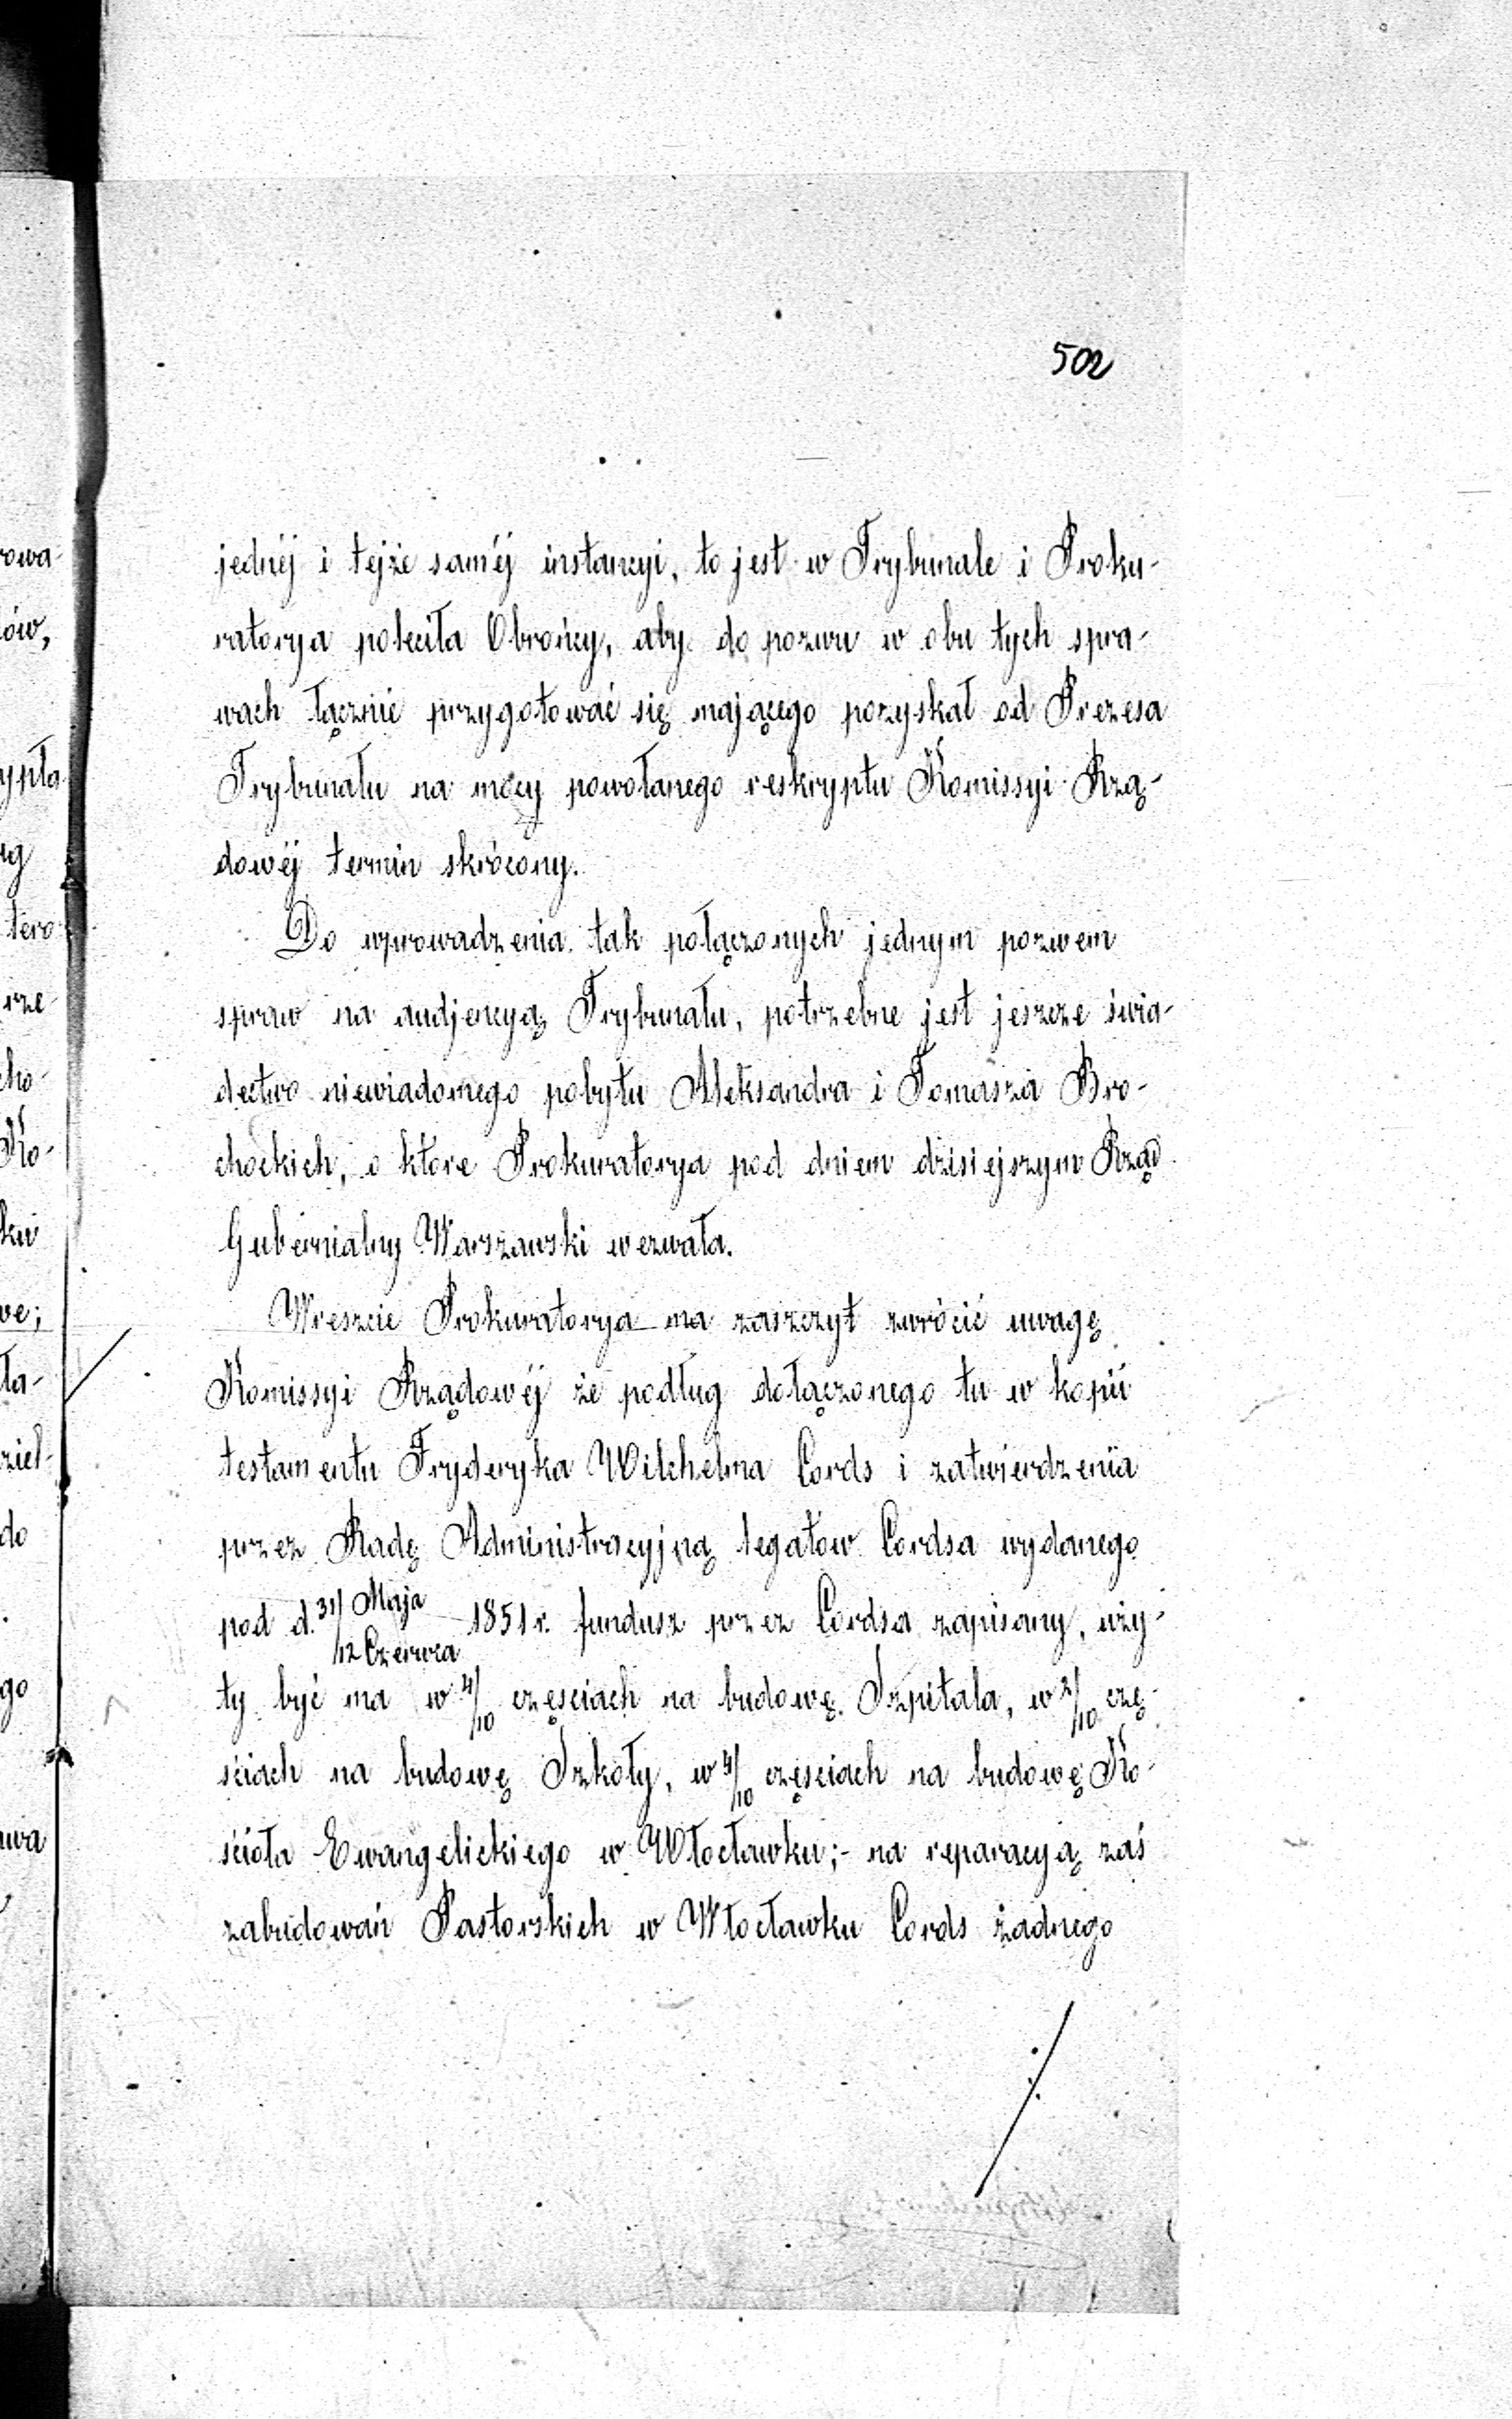 502
jednéj i téjże saméj instancyi, to jest w Trybunale i Proku-
ratorya poleciła Obrońcy, aby do pozwu w obu tych spra-
wach łącznie przygotować się mającego pozyskał od Prezesa
Trybunału na mocy powołanego reskryptu Komissyi Rzą-
dowéj termin skrócony.
Do wprowadzenia tak połączonych jednym pozwem
spraw na audjencyą Trybunału, potrzebne jest jeszcze świa-
dectwo niewiadomego pobytu Aleksandra i Tomasza Bro-
chockich, o które Prokuratorya pod dniem dzisiejszym Rząd
Gubernialny Warszawski wezwała.
Wreszcie Prokuratorya ma zaszczyt zwrócić uwagę
Komissyi Rządowéj że podług dołączonego tu w kopii
testamentu Fryderyka Wilchelma Cords i zatwierdzenia
przez Radę Administracyjną legatów Cordsa wydanego
pod d. 31/12 Maja/Czerwca 1851 r. fundusz przez Cordsa zapisany, uży-
ty być ma w 4/10 częściach na budowę Szpitala, w 2/10 czę-
ściach na budowę Szkoły, w 4/10 częściach na budowę Ko-
ścioła Ewangelickiego w Włocławku;- na reparacyą zaś
zabudowań Pastorskich w Włocławku Cords żadnego